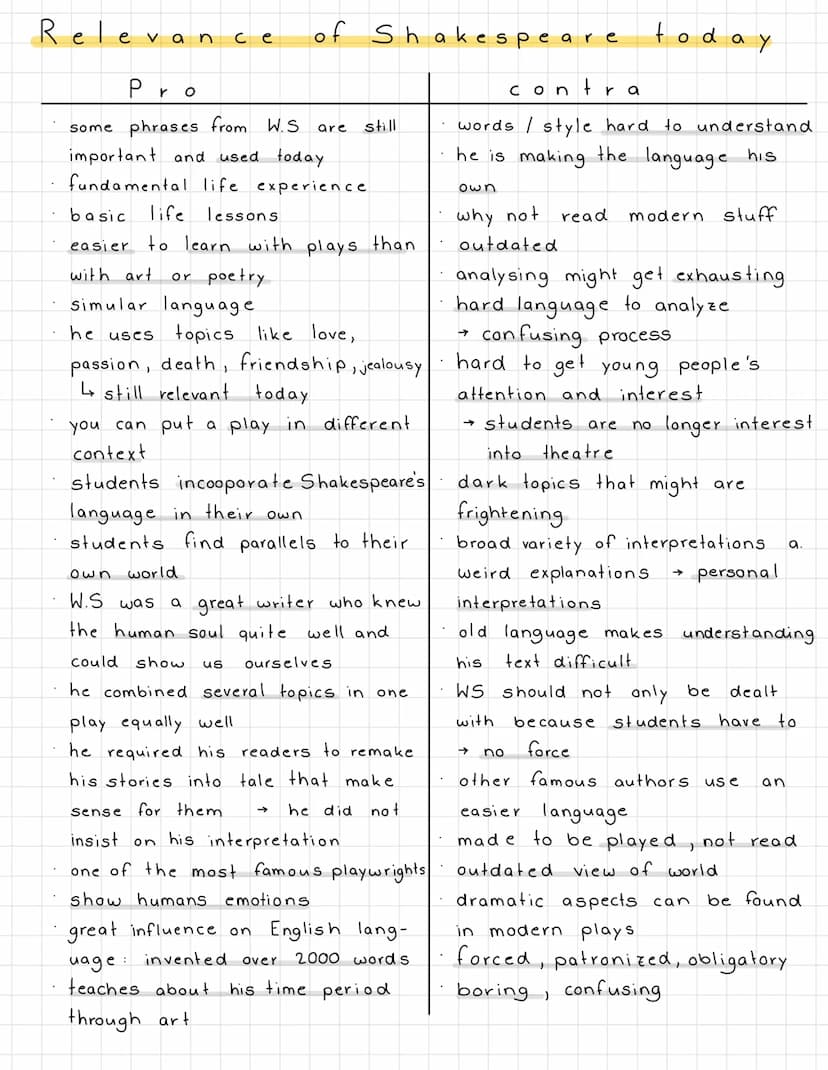 Relevance of Shakespeare today
Pro
· some phrases from W.S are still
important and used today
· fundamental life experience
· basic life lessons
· easier to learn with plays than
with art or poetry
· simular language
· he uses topics like love,
passion, death, friendship, jealousy
↳ still relevant today
· you can put a play in different
context
· students incooporate Shakespeare's
language in their own
· students find parallels to their
own world
· W.S was a great writer who knew
the human soul quite well and
could show us ourselves
· he combined several topics in one
play equally well
· he required his readers to remake
his stories into tale that make
sense for them → he did not
insist on his interpretation
· one of the most famous playwrights
· show humans emotions
· great influence on English lang-
uage: invented over 2000 words
· teaches about his time period
through art
contra
· words / style hard to understand
· he is making the language his
own
· why not read modern stuff
· outdated
· analysing might get exhausting
· hard language to analyze
→ confusing process
· hard to get young people's
attention and interest
→ students are no longer interest
into theatre
· dark topics that might are
frightening
· broad variety of interpretations a.
weird explanations → personal
interpretations
· old language makes understanding
his text difficult
· WS should not only be dealt
with because students have to
→ no force
· other famous authors use an
easier language
· made to be played, not read
· outdated view of world
· dramatic aspects can be found
in modern plays
· forced, patronized, obligatory
· boring, confusing